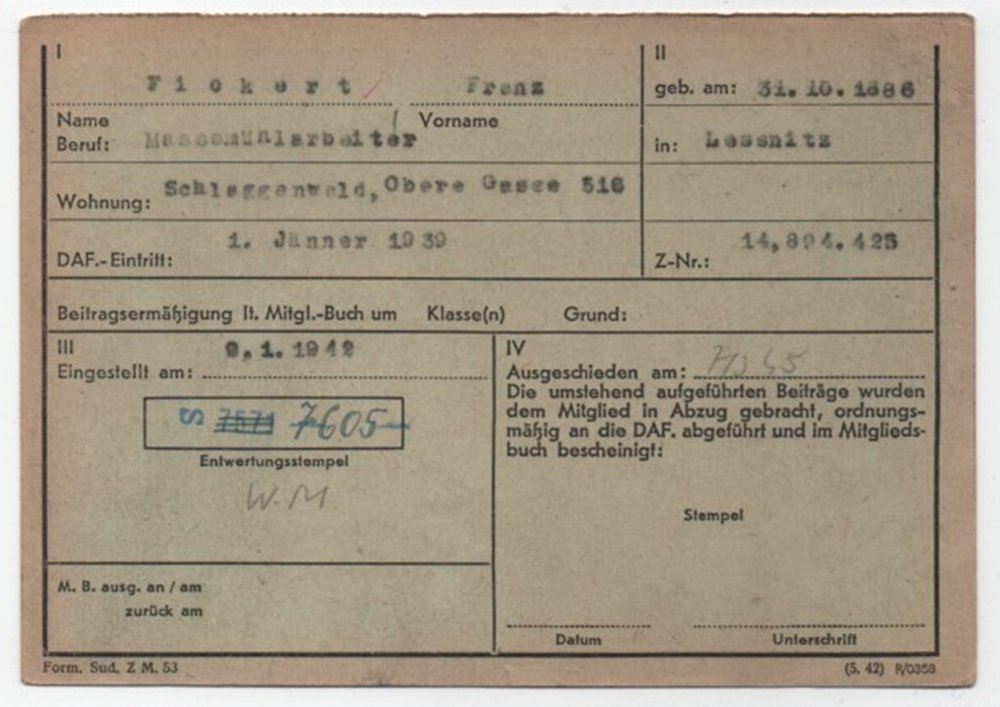 I
II
Fickert Franz
geb. am: 31. 10. 1886
Name Vorname
Beruf: Massemühlarbeiter
in: Lessnitz
Wohnung: Schlaggenwald, Obere Gasse 516
DAF.-Eintritt: 1. Jänner 1939
Z-Nr.: 14,894.425
Beitragsermäßigung lt. Mitgl.-Buch um Klasse(n) Grund:
III
Eingestellt am: 9.1.1942
S 7571 7605
Entwertungsstempel
W. M
IV
Ausgeschieden am:
Die umstehend aufgeführten Beiträge wurden
dem Mitglied in Abzug gebracht, ordnungs-
mäßig an die DAF. abgeführt und im Mitglieds-
buch bescheinigt:
Stempel
M. B. ausg. an / am
zurück am
Datum Unterschrift
Form. Sud. Z M. 53
(5. 42) R/0358